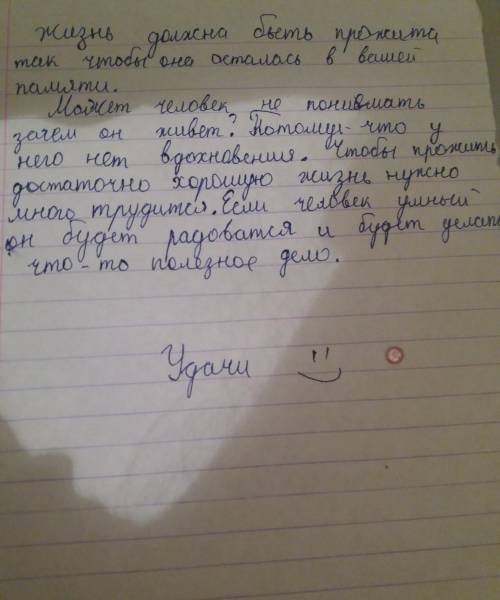 Жизнь должна быть прожита
так чтобы она осталась в вашей
памяти.
Может человек не понимать
зачем он живет? Потому-что у
него нет вдохновения. Чтобы прожить
достаточно хорошую жизнь нужно
много трудится. Если человек умный
он будет радоватся и будет делать
что-то полезное дело.
Удачи